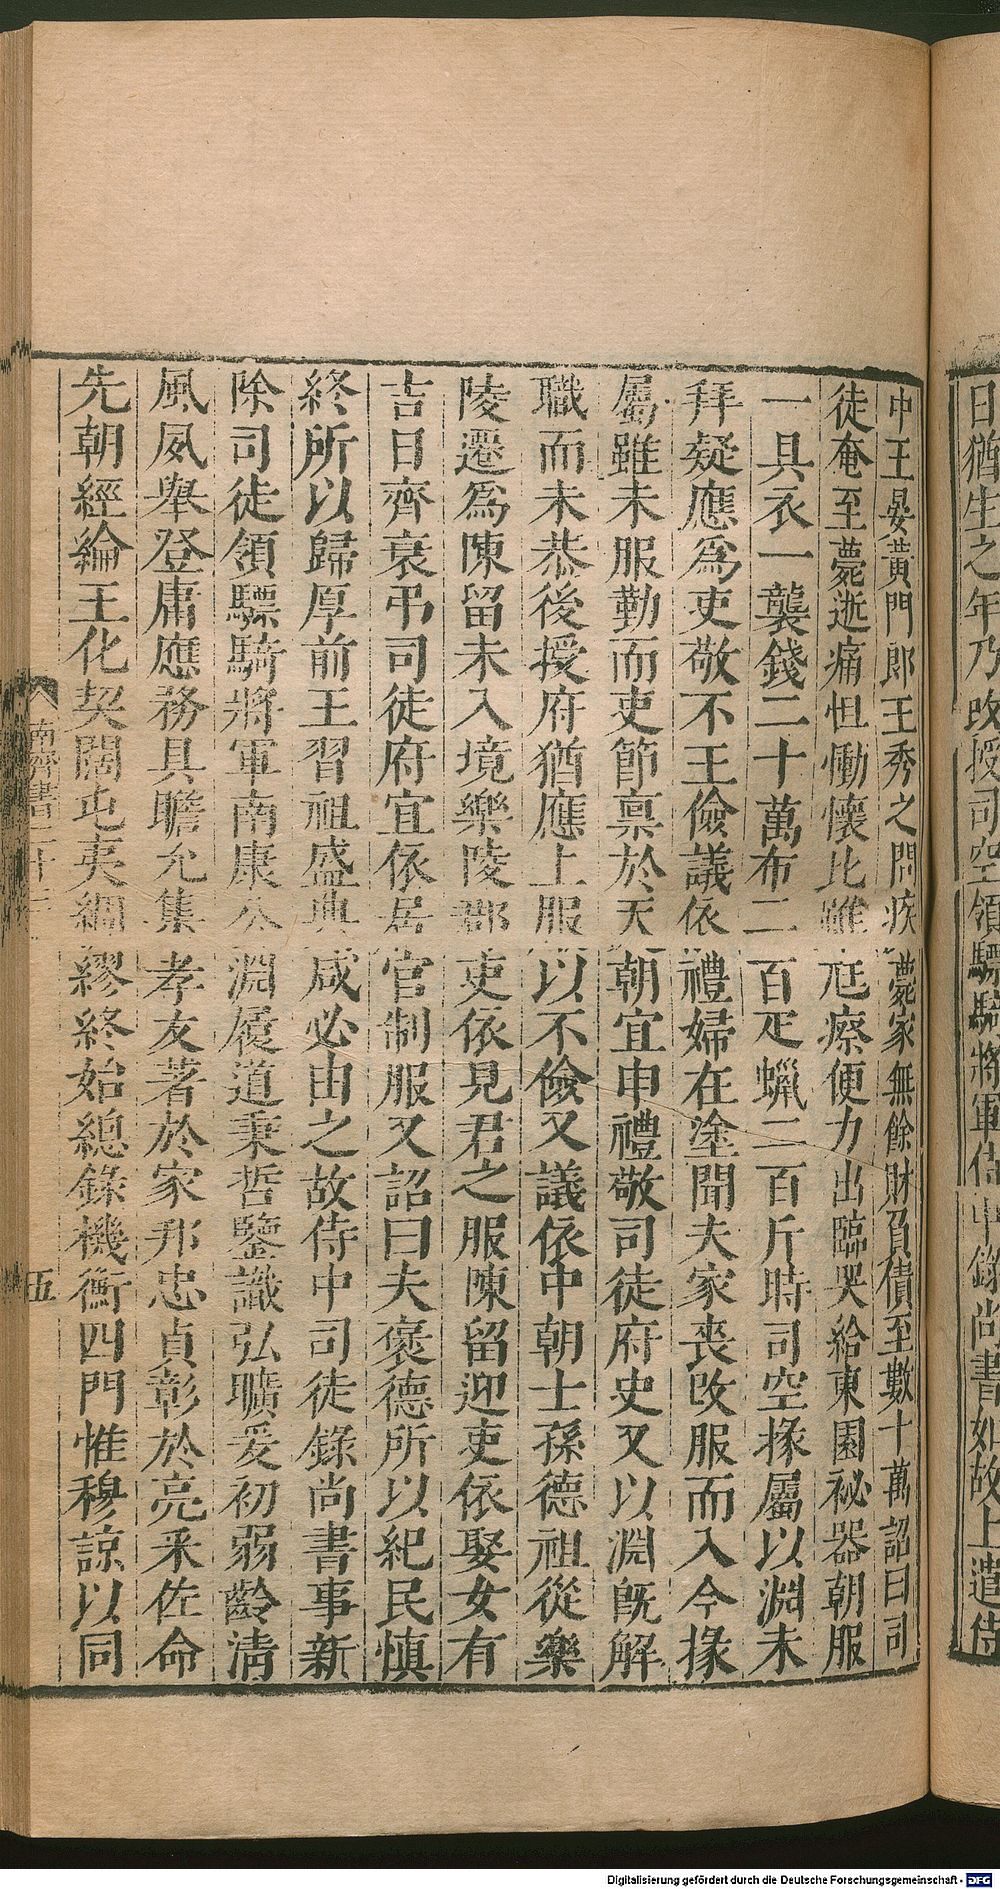 日猶生之年乃改授司空領驃騎將軍侍中錄尚書如故上遣侍
中王晏黃門郎王秀之問疾薨家無餘財負債至數十萬詔曰司
徒奄至薨逝痛怛慟懷比雖尫瘵便力出臨哭給東園祕器朝服
一具衣一襲錢二十萬布二百疋蠟二百斤時司空掾屬以淵未
拜疑應爲吏敬不王儉議依禮婦在塗聞夫家喪改服而入今掾
屬雖未服勤而吏節禀於天朝宜申禮敬司徒府史又以淵既解
職而未恭後授府猶應上服以不儉又議依中朝士孫德祖從樂
陵遷爲陳留未入境樂陵郡吏依見君之服陳留迎吏依娶女有
吉日齊衰弔司徒府宜依居官制服又詔曰夫褒德所以紀民慎
終所以歸厚前王習祖盛典咸必由之故侍中司徒錄尚書事新
除司徒領驃騎將軍南康公淵履道秉哲鑒識弘曠爰初弱齡清
風夙舉登庸應務具瞻允集孝友著於家邦忠貞彰於亮采佐命
先朝經綸王化契闊屯夷綢繆終始總錄機衡四門惟穆諒以同
南齊書二十三
五
Digitalisierung gefördert durch die Deutsche Forschungsgemeinschaft - DFG